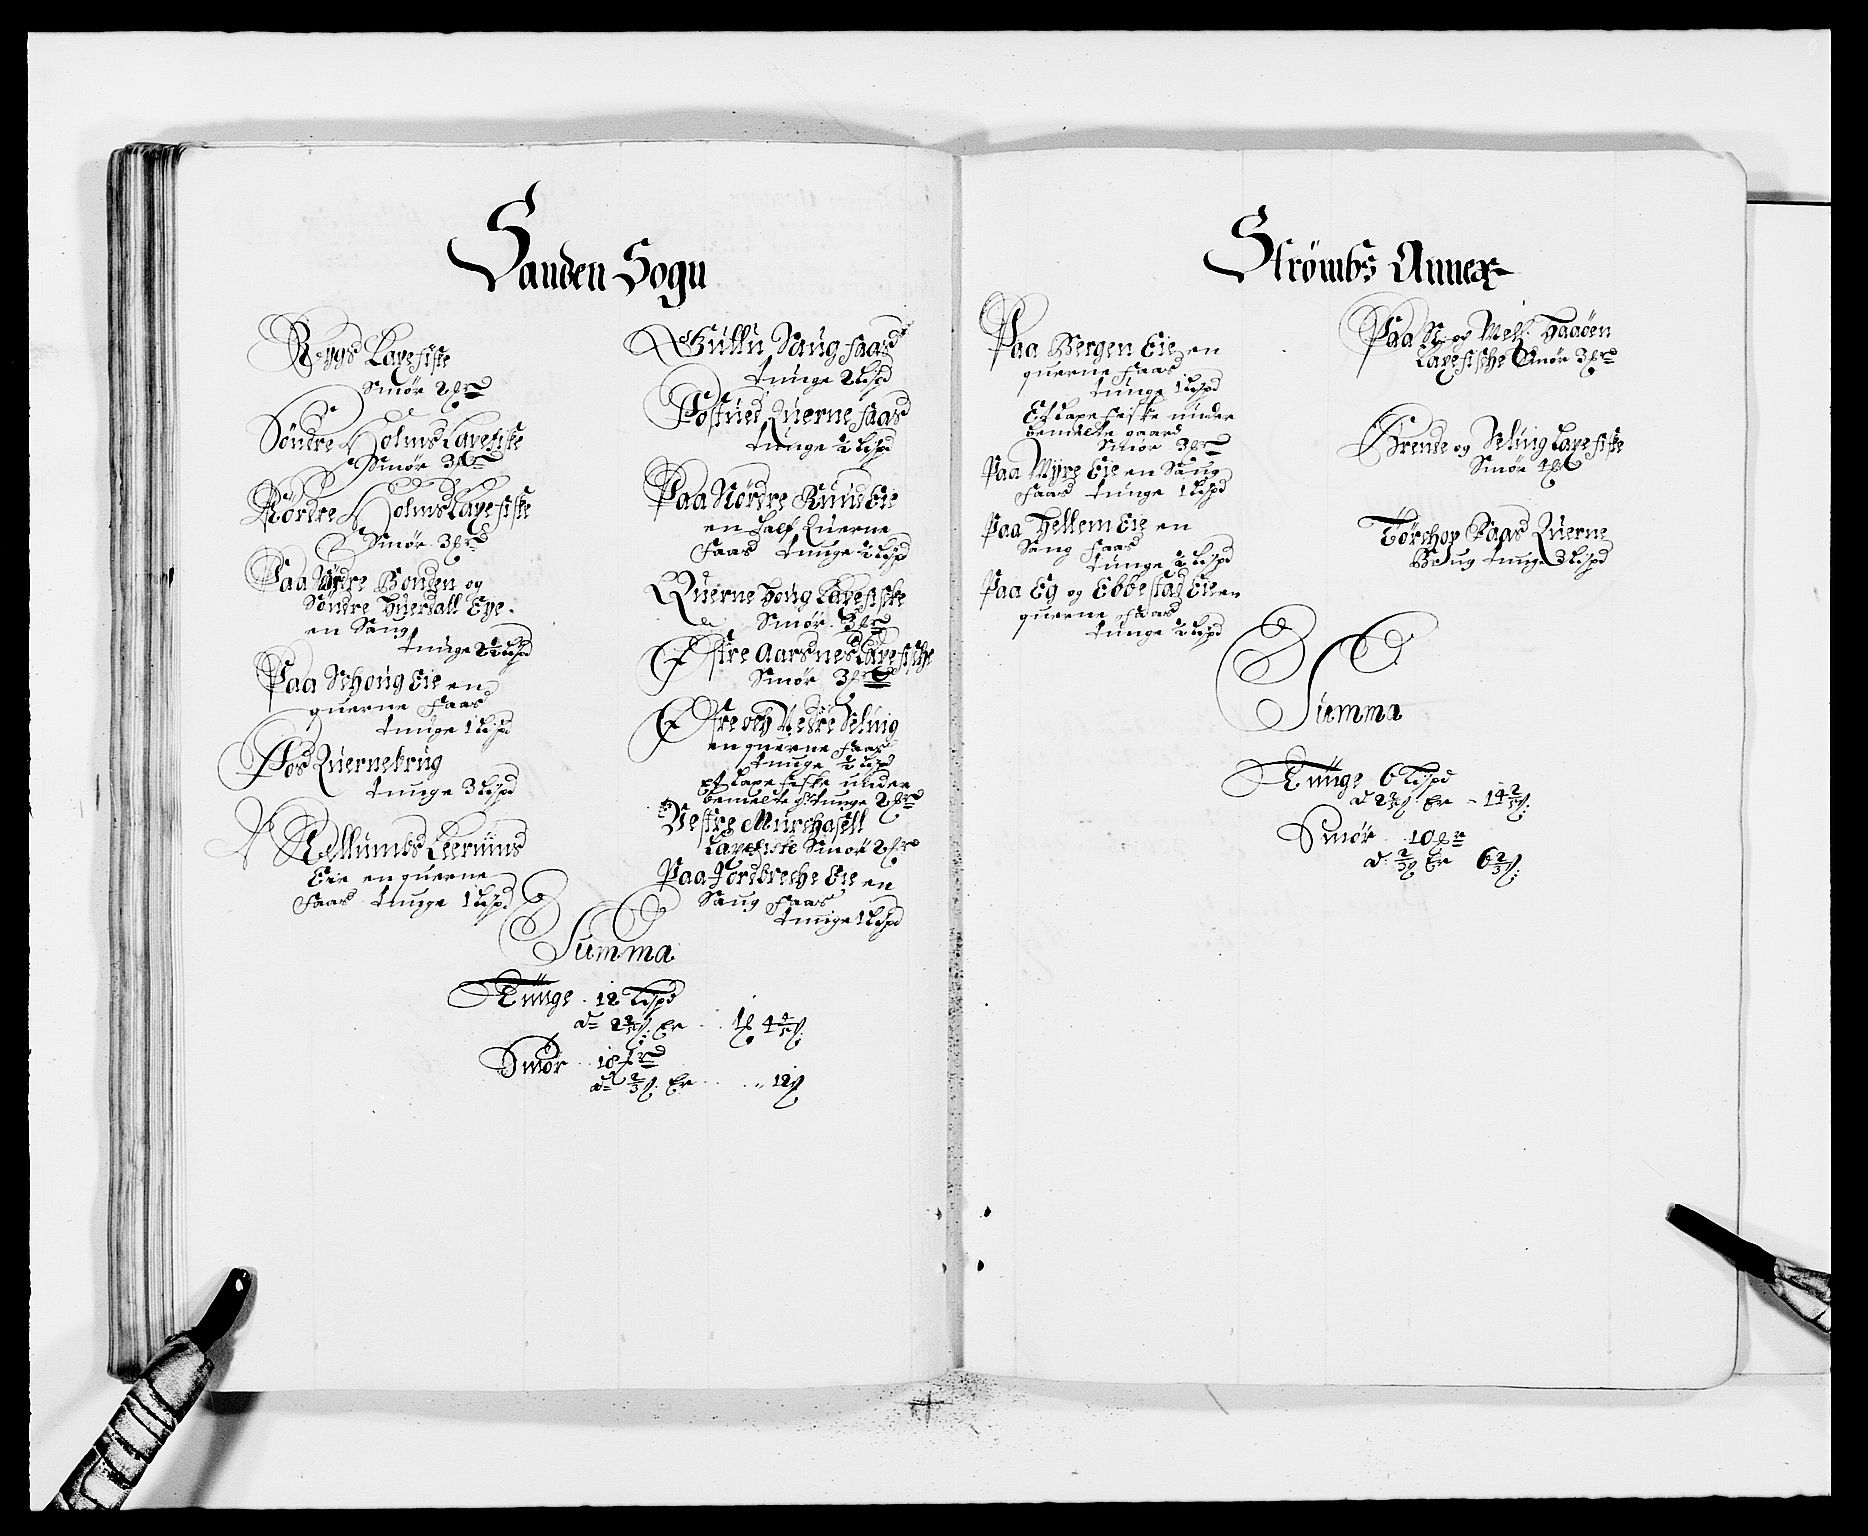 Sanden Sogn
Rygs Laxefiske
Smør 2
Söndre Holms Laxefiske
Smør 3
Nördre Holms Laxefiske
Smør 3
Paa Nördre Bonden og
Söndre Huersall Eye
en Saug
tunge 2 Lispd
Paa Schoug Eie en
querne Faas
tunge 1 Lispd
Fos Quernebrug
tunge 3 Lispd
Eie en querne
Faas tunge 1 Lispd
Gullu Saug faas
tunge 2 Lispd
Quernefaas
tunge 2 Lispd
Paa Nördre Ruud Eie
en half Querne
Faas tunge 2 Lispd
Querne Houg Laxefiske
Smør 3
Østre Aarsnes Laxefische
Smør 3
Østre och Vestre Seluig
en querne Faas
tunge 2 Lispd
et Laxe fiske under
bemelte g: tunge 2
Vestre Murchasell
Laxefiske Smør 2
Paa Jordbreche Eie en
Saug Faas
tunge 1 Lispd
Summa
Tunge 12 Lispd
Er
Smør 18
Er 12
Strømbs Annex
Paa Bergen Eie en
querne Faas
tunge 1 Lispd
Et Laxe fiske under
bemelte gaard
Smør 3
Paa Myre Eie en Saug
Faas tunge 1 Lispd
Paa Hellem Eie en
Saug Faas
tunge 2 Lispd
Paa Eg og Ebbestad Eie en
querne Faas
tunge 2 Lispd
Haaöen
Laxefische Smør 3
Brende og Seluig Laxefiske
Smør
Tørchop Faas Querne
Brug tunge Lispd
Summa
Tunge 6 Lispd
Er 14 2/5
Smør 10
Er 6 2/3